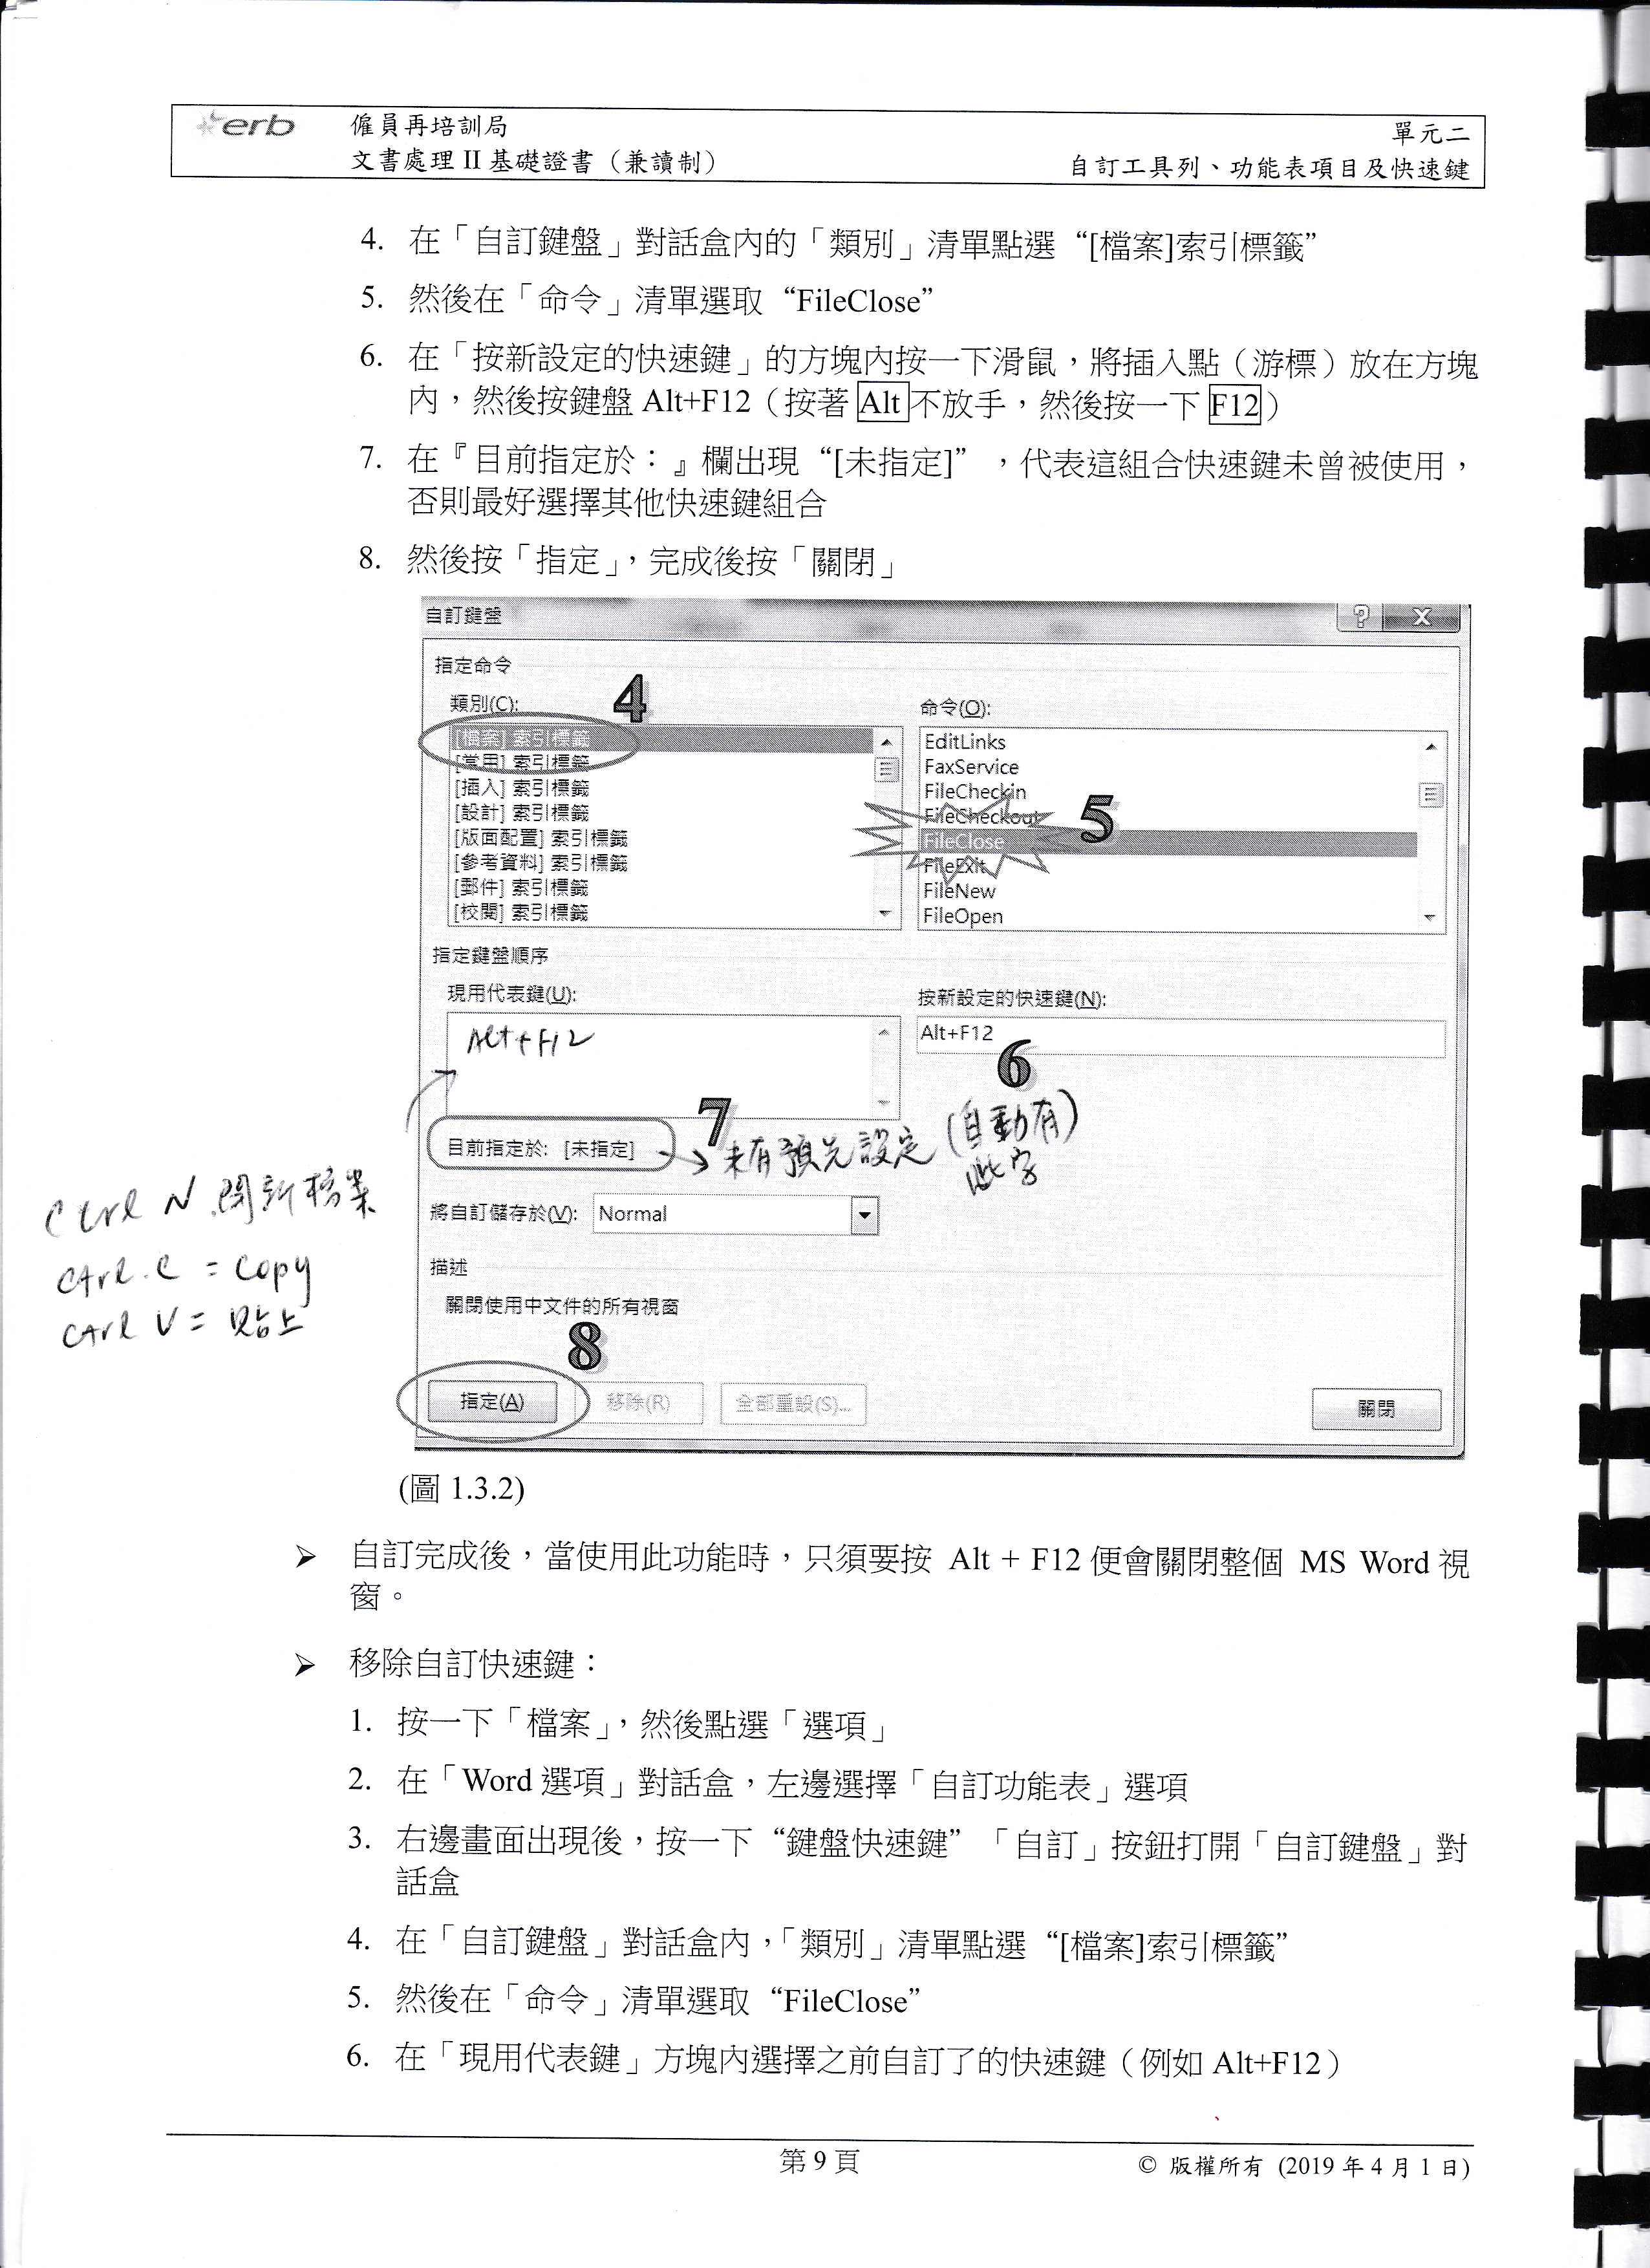 erb
僱員再培訓局
單元二
文書處理 II 基礎證書（兼讀制）
自訂工具列、功能表項目及快速鍵
4. 在「自訂鍵盤」對話盒內的「類別」清單點選 “[檔案]索引標籤”
5. 然後在「命令」清單選取 “FileClose”
6. 在「按新設定的快速鍵」的方塊內按一下滑鼠，將插入點（游標）放在方塊
內，然後按鍵盤 Alt+F12（按著 Alt 不放手，然後按一下 F12）
7. 在『目前指定於：』欄出現 “[未指定]” ，代表這組合快速鍵未曾被使用，
否則最好選擇其他快速鍵組合
8. 然後按「指定」，完成後按「關閉」
自訂鍵盤
指定命令
類別(C):
4
[檔案] 索引標籤
[常用] 索引標籤
[插入] 索引標籤
[設計] 索引標籤
[版面配置] 索引標籤
[參考資料] 索引標籤
[郵件] 索引標籤
[校閱] 索引標籤
命令(O):
EditLinks
FaxService
FileCheckin
FileCheckout
FileClose
5
FileExit
FileNew
FileOpen
指定鍵盤順序
現用代表鍵(U):
Alt+F12
按新設定的快速鍵(N):
Alt+F12
6
7
目前指定於: [未指定]
未有預先設定 (自動有)
此字
Ctrl N 開新檔案
Ctrl.C = Copy
Ctrl V = 貼上
將自訂儲存於(V): Normal
描述
關閉使用中文件的所有視窗
8
指定(A) 移除(R) 全部重設(S)... 關閉
(圖 1.3.2)
➢ 自訂完成後，當使用此功能時，只須要按 Alt + F12 便會關閉整個 MS Word 視
窗。
➢ 移除自訂快速鍵：
1. 按一下「檔案」，然後點選「選項」
2. 在「Word 選項」對話盒，左邊選擇「自訂功能表」選項
3. 右邊畫面出現後，按一下 “鍵盤快速鍵” 「自訂」按鈕打開「自訂鍵盤」對
話盒
4. 在「自訂鍵盤」對話盒內，「類別」清單點選 “[檔案]索引標籤”
5. 然後在「命令」清單選取 “FileClose”
6. 在「現用代表鍵」方塊內選擇之前自訂了的快速鍵（例如 Alt+F12）
第 9 頁
© 版權所有 (2019 年 4 月 1 日)